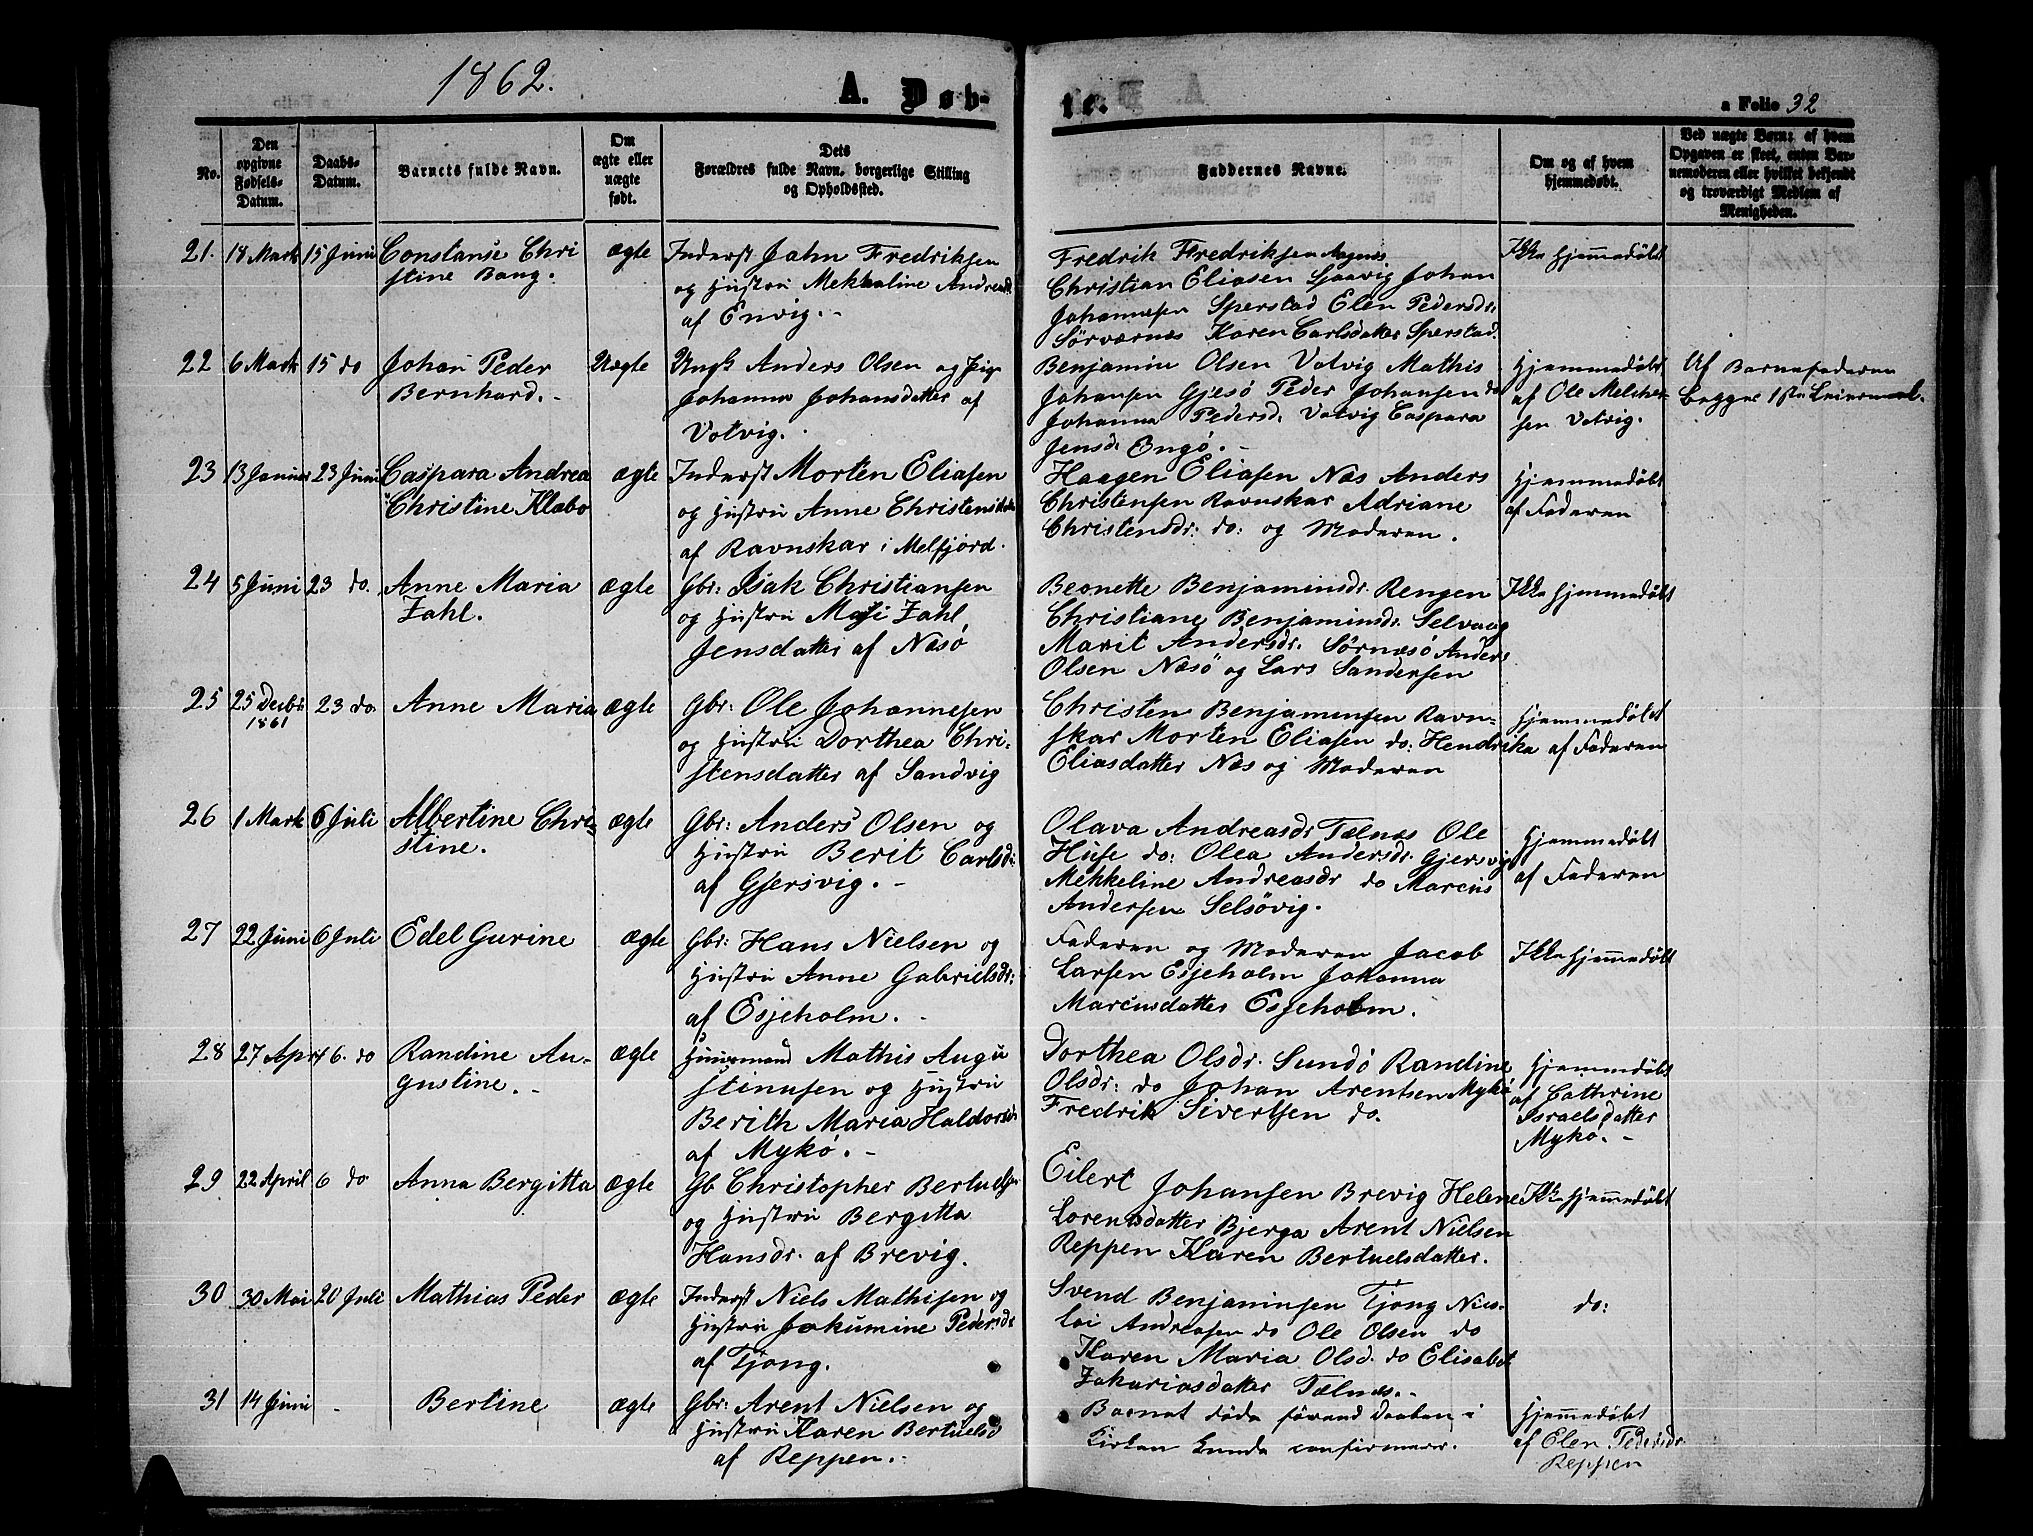 1862.
A. Døb-
te.
a Folio 32
No.
Den opgivne Fødsels-Datum.
Daabs-Datum.
Barnets fulde Navn.
Om ægte eller uægte født.
Dets Forældres fulde Navn, borgerlige Stilling og Opholdssted.
Faddernes Navne.
Om og af hvem hjemmedøbt.
Ved uægte Børn: af hvem Opgaven er skeet, enten Barnemoderen eller hvilket bekjendt og troværdigt Medlem af Menigheden.
21. 18 Marts 15 Juni Constanse Chri ægte Inderst Jahn Fredriksen
stine Bang. og Hustru Mekkaline Andreasd.
af Envig.-
Fredrik Fredriksen Aagnes Ikke hjemmedøbt
Christian Eliasen Sjaavig Johan
Johannesen Sperstad Elen Pedersdr:
Sørværnes Karen Carlsdatter Sperstad.
22 6 Marts 15 do Johan Peder Uægte Ungk Anders Olsen og Pig
Bernhard.- Johanna Johansdatter af
Votvig.
Benjamin Olsen Votvig Mathis Hjemmedøbt Af Barnefaderen
Johansen Gjesø Peder Johansen do af Ole Melcher- begges 1ste Leiermaal.
Johanna Pedersd. Votvig Caspara sen Votvig.
Jensd. Engø.-
23 13 Januar 23 Juni Caspara Andrea ægte Inderst Morten Eliasen
Christine Klæbo og Hustru Anne Christensdatter
af Ravnskar i Melfjord.
Haagen Eliasen Næs Anders Hjemmedøbt
Christensen Ravnskar Adriane af Faderen
Christensdr: do: og Moderen.
24 5 Juni 23 do. Anne Maria ægte Gbr: Isak Christiansen
Zahl. og Hustru Masi Zahl
Jensdatter af Næsø
Beonette Benjaminsdr. Rengen Ikke hjemmedøbt
Christiane Benjaminsdr. Selvaag
Marit Andersdr. Sørnæsø Anders
Olsen Næsø og Lars Sandersen
25 25 Decbr. 1861 23 do. Anne Maria ægte Gbr: Ole Johannesen
og Hustru Dorthea Chri-
stensdatter af Sandvig
Christen Benjaminsen Ravn- Hjemmedøbt
skar Morten Eliasen do: Hendrika af Faderen
Eliasdatter Næs og Moderen
26 1 Marts 6 Juli Albertine Chri- ægte Gbr: Anders Olsen og
stine. Hustru Berit Carlsdr:
af Gjersvig.-
Olava Andreasdr Tælnæs Ole Hjemmedøbt
Huse do: Olea Andersdr. Gjersvig af Faderen
Mekkeline Andreasdr do Marcus
Andersen Selsøvig.
27 22 Juni 6 Juli Edel Gurine ægte Gbr: Hans Nielsen og
Hustru Anne Gabrielsdr:
af Esjeholm.-
Faderen og Moderen Jacob Ikke hjemmedøbt
Larsen Esjeholm Johanna
Marcusdatter Esjeholm.
28 27 April 6. do Randine Au- ægte Huusmand Mathis Augu
gustine.- stinusen og Hustru
Berith Maria Haldorsdr
af Mykø.-
Dorthea Olsdr. Sundø Randine Hjemmedøbt
Olsdr: do Johan Arentsen Mykø af Cathrine
Fredrik Sivertsen do. Israelsdatter
Mykø.-
29 22 April 6 do Anna Bergitta ægte Gb Christopher Bertuelsen
og Hustru Bergitta
Hansdr. af Brevig.
Eilert Johansen Brevig Helene Ikke hjemmedøbt
Lorentsdatter Bjerga Arent Nielsen
Reppen Karen Bertuelsdatter.
30 30 Mai 20 Juli Mathias Peder ægte Inderst Niels Mathisen og
Hustru Jokumine Pedersdr
af Tjong.
Svend Benjaminsen Tjong Nico- do:
lai Andreasen do Ole Olsen do
Karen Maria Olsd. do Elisabet
Zakariasdatter Tælnæs.-
31 14 Juni - Bertine ægte Gbr: Arent Nielsen og
Hustru Karen Bertuelsd
af Reppen.-
Barnet døde førend Daaben i Hjemmedøbt
Kirken kunde confirmeres. af Elen Pedersdr
Reppen